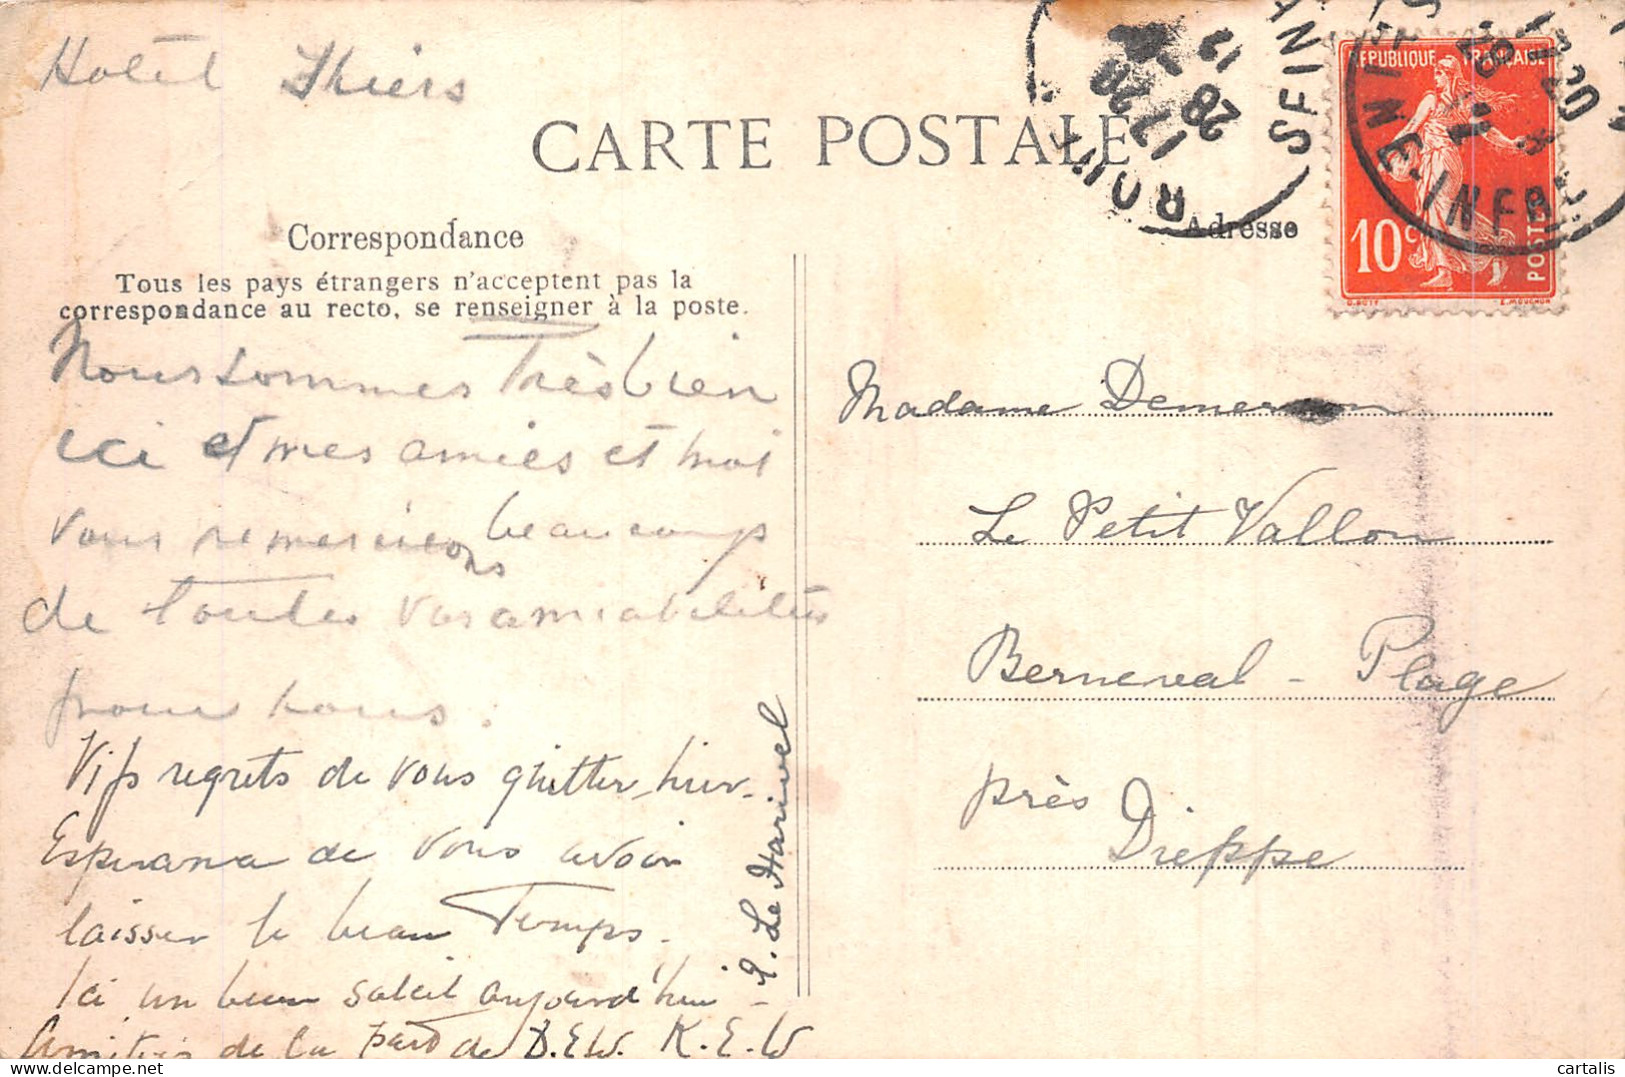 Hotel Thiers
CARTE POSTALE
Correspondance
Tous les pays étrangers n'acceptent pas la
correspondance au recto, se renseigner à la poste.
Nous sommes Très bien
ici et mes amies et moi
vous remercions beaucoup
de toutes vos amiabilités
pour nous.
Vifs regrets de vous quitter hier.
de vous avoir
laisser le beau Temps.
Ici un beau soleil aujourd'hui
Amitiés de la part de D.E.W. K.E.W
Le Harivel
ROUEN
17 20
28
12
SEINE
RÉPUBLIQUE FRANÇAISE
10 c
POSTES
O. ROTY
E. MOUCHON
SEINE-INFRE
28
11
Adresse
Madame
Le Petit Vallon
Berneval - Plage
près
Dieppe
cartalis